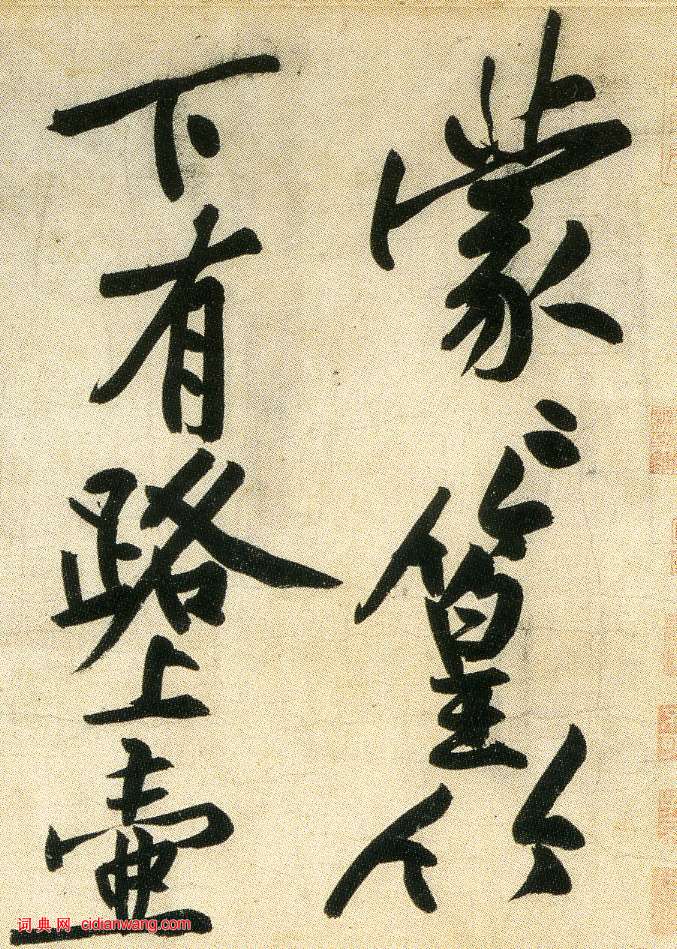 蒙〻篁竹
下有路上壺
词典网 cidianwang.com